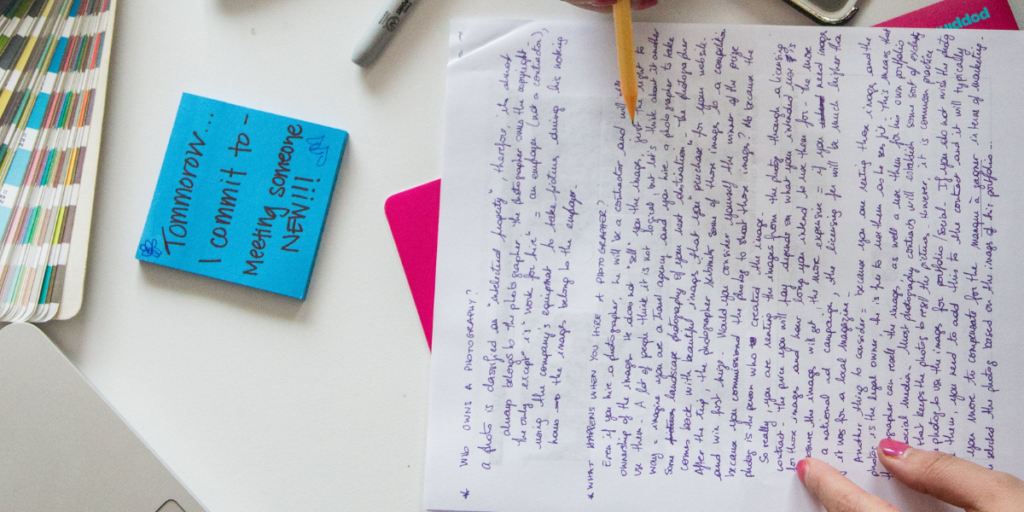 Tommorow...
I commit to -
Meeting someone
NEW!!!!
* WHO OWNS A PHOTOGRAPHY?
a photo is classified as "intellectual property" therefore, its
always belongs to the photographer. The photographer owns the copyright
the only except is "work for hire" = an employee (not a contractor),
using the company's equipment to take pictures during his working
hours → the images belong to the employer.
* WHAT HAPPENS WHEN YOU HIRE A PHOTOGRAPHER?
Even if you hire a photographer, he will be a contractor and will
ownership of the image. He does not "sell" you the image, the right to
use them. A lot of people think it is not logical but let's think about it another
way = imagine you are a Travel agency and you hire a photographer to take
some landscape photography of your next destination. The photographer
comes back with beautiful images that you purchase for your website
After the trip, the photographer submits some of those images to a competition
and win first prize. Would you consider yourself the winner of the prize
because you commissioned the photog to shoot those images? No because the
photog is the person who created the image.
So really, you are renting the images from the photog through a licensing
contract. The price you will pay depends on what you intended use is
for those images and how long you intend to use them for. The more
the image will get, the more expensive = if you need image
a national ad campaign, the licensing fee will be much higher than
it was for a local magazine.
Another thing to consider = because you are renting those images and the
photog is the legal owner, he is free to use them as he see fit. This means that
photographer can resell the images, as well as use them for his own portfolio
social media. Most photography contracts will establish some sort of exclusivity
that keeps the photog to resell the picture, however it is common practice
photog to use the images for portfolio / social. If you do not wish the photog
them, you need to add this to the contract and it will typically
you more to compensate for the marque à gagner in term of marketing.
selected the photog based on the images of his portfolio...
poppho